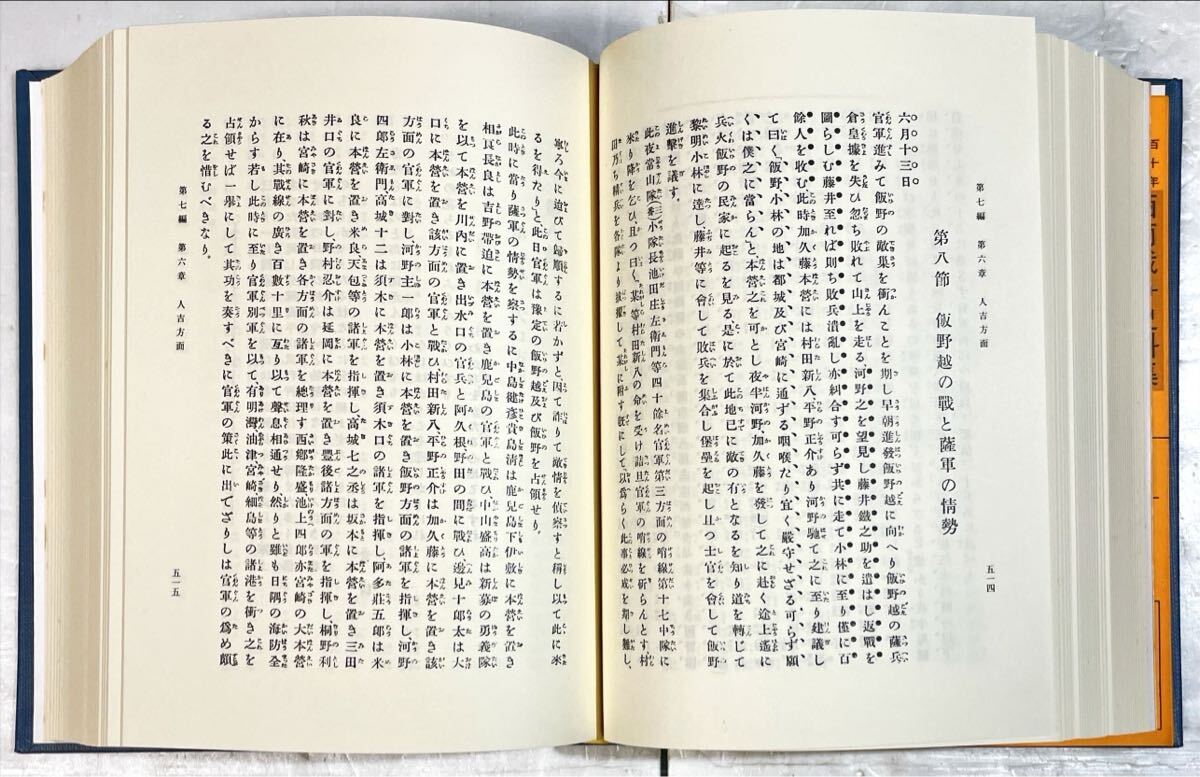 第七編　第六章　人吉方面
五一四
第八節　飯野越の戰と薩軍の情勢
六月十三日
官軍進みて飯野の敵巢を衝んことを期し早朝進發飯野越に向へり飯野越の薩兵
倉皇據を失ひ忽ち敗れて山上を走る、河野之を望見し藤井鐵之助を遣はし返戰を
圖らしむ藤井至れば則ち敗兵潰亂し亦糾合す可らず共に走て小林に至り僅に百
餘人を收む此時加久藤本營には村田新八平野正介あり河野馳て之に至り建議し
て曰く「飯野小林の地は都城及び宮崎に通ずる咽喉たり宜く嚴守せざる可らず願
くは僕之に當らんと本營之を可とし夜半河野加久藤を發して之に赴く途上遙に
兵火飯野の民家に起るを見る是に於て此地已に敵の有となるを知り道を轉じて
黎明小林に達し藤井等に會して敗兵を集合し堡壘を起し且つ士官を會して飯野
進擊を議す。
此夜常山隊(三番)小隊長池田庄左衞門等四十餘名官軍第三方面の哨線第十七中隊に
來り降を乞ひ且つ曰く、某等村田新八の命を受け詰旦官軍の哨線を斫らんとす村
田乃ち精兵を各隊より拔擢して、某に附す慨にして以爲らく此事必成を期し難し、
寧ろ今に迨びて歸順するに若かずと因て詐りて敵情を偵察すと稱し以て此に來
るを得たりと此日官軍は豫定の飯野越及び飯野を占領せり。
此時に當り薩軍の情勢を察するに中島健彥貴島淸は鹿兒島下伊敷に本營を置き
相良長良は吉野帶迫に本營を置き鹿兒島の官軍と戰ひ中山盛高は新募の勇義隊
を以て本營を川內に置き出水口の官兵と阿久根野田の間に戰ひ邊見十郞太は大
口に本營を置き該方面の官軍と戰ひ村田新八平野正介は加久藤に本營を置き該
方面の官軍に對し河野主一郞は小林に本營を置き飯野方面の諸軍を指揮し河野
四郞左衞門高城十二は須木に本營を置き須木口の諸軍を指揮し阿多莊五郞は米
良に本營を置き米良天包等の諸軍を指揮し高城七之丞は坂本に本營を置き三田
井口の官軍に對し野村忍介は延岡に本營を置き豐後諸方面の軍を指揮し桐野利
秋は宮崎に本營を置き各方面の諸軍を總理す西鄕隆盛池上四郞亦宮崎の大本營
に在り其戰線の廣き百數十里に亙り以て聲息相通せり然りと雖も日隅の海防全
からす若し此時に至り官軍別軍を以て有明灣油津宮崎細島等の諸港を衝き之を
占領せば一擧にして其功を奏すべきに官軍の策此に出でざりしは官軍の爲め頗
る之を惜むべきなり。
第七編　第六章　人吉方面
五一五